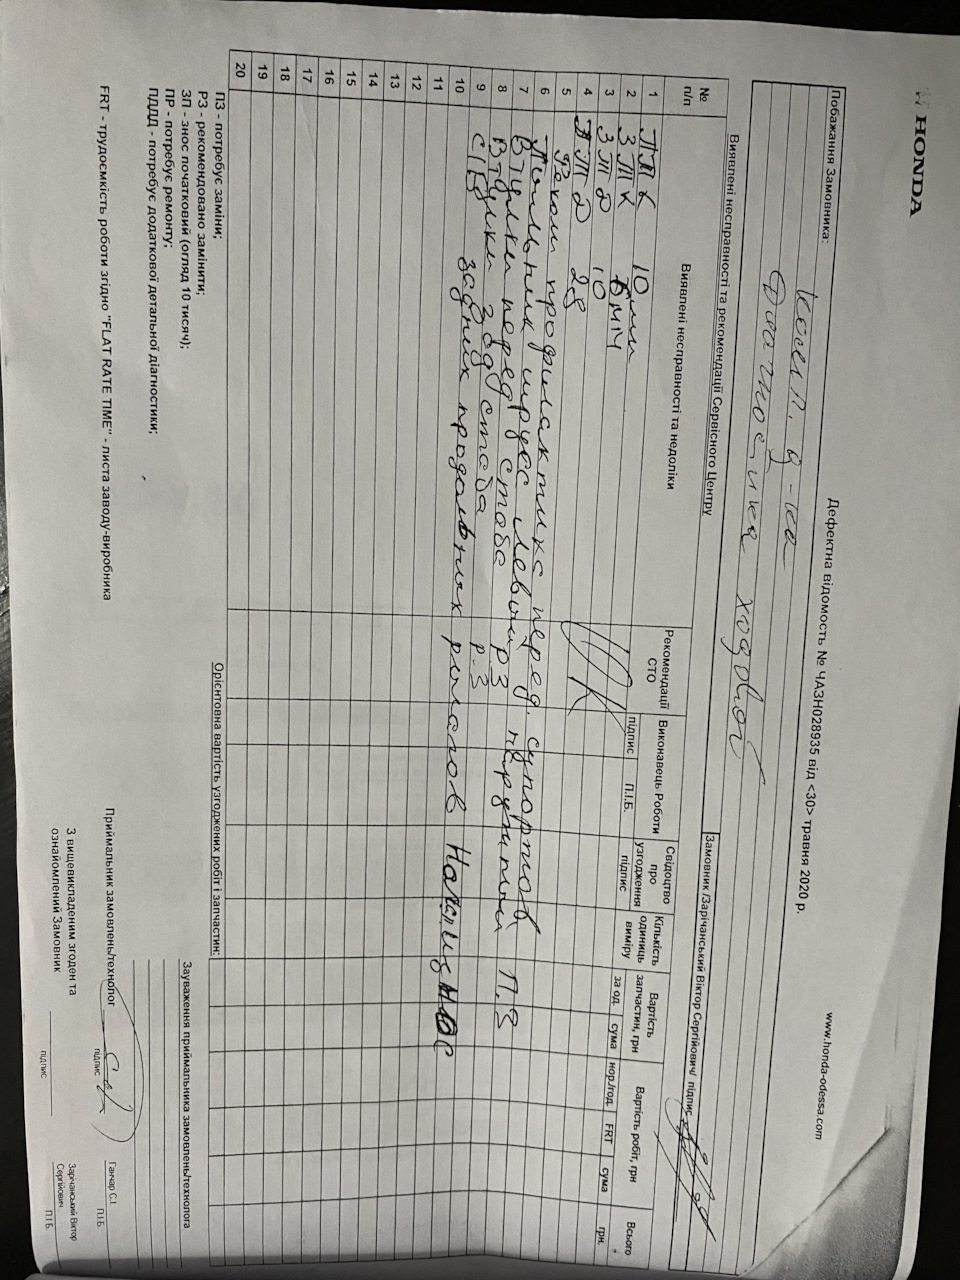 HONDA
www.honda-odessa.com
Дефектна відомость № ЧАЗН028935 від <30> травня 2020 р.
Побажання Замовника:
Диагностика ходовой
Замовник /Зарічанський Віктор Сергійович/ підпис
Виявлені несправності та рекомендації Сервісного Центру
№ п/п
Виявлені несправності та недоліки
Рекомендації СТО
Виконавець Роботи
підпис
П.І.Б.
Свідоцтво про узгодження підпис
Кількість одиниць виміру
Вартість запчастин, грн
за од.
сума
Вартість робіт, грн
нор./год.
FRT
сума
Всього грн.
1 ПТК 10 мм
2 ЗТК 6 мм
3 ЗТД 10
4 ПТД 28
5 Реком профилактика перед. супортов
6 Пыльник шрус левый наружный П.З
7 Втулки перед стаб р.З
8 Втулки зад стаба р.З
9 С/Б задних продольных рычагов
10
11
12
13
14
15
16
17
18
19
20
Орієнтовна вартість узгоджених робіт і запчастин:
ПЗ - потребує заміни;
РЗ - рекомендовано замінити;
ЗП - знос початковий (огляд 10 тисяч);
ПР - потребує ремонту;
ПДДД - потребує додаткової детальної діагностики;
FRT - трудоємкість роботи згідно "FLAT RATE TIME" - листа заводу-виробника
Зауваження приймальника замовлень/технолога
Приймальник замовлень/технолог
підпис
Ганчар С.І.
П.І.Б.
З вищевикладеним згоден та
ознайомлений Замовник
підпис
Зарічанський Віктор
Сергійович
П.І.Б.